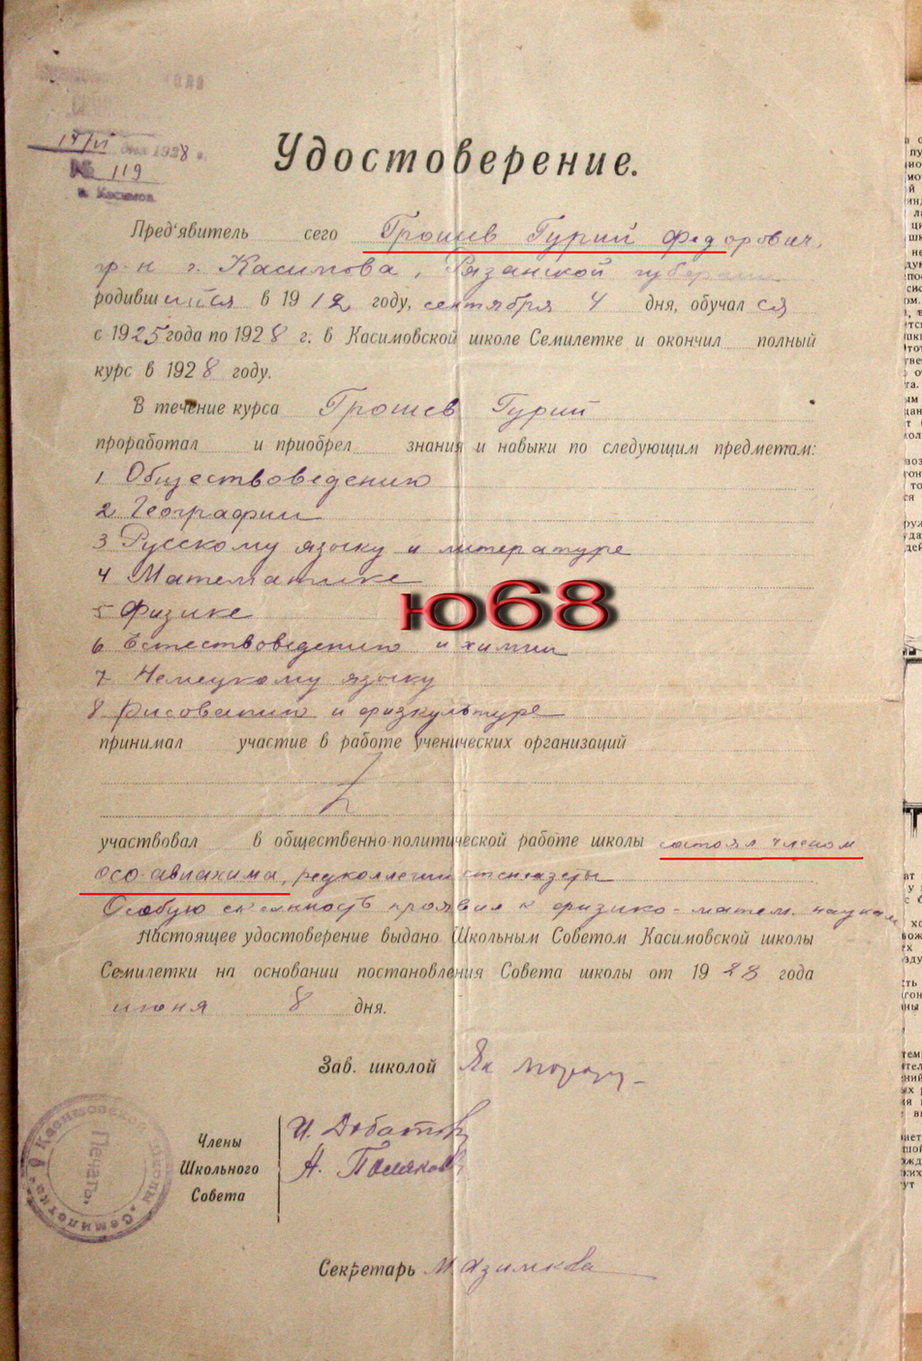 14/VI дня 1928 г.
№ 119
г. Касимов.
Удостоверение.
Пред'явитель сего Грошев Гурий Федорович,
гр-н г. Касимова, Рязанской губернии
родившийся в 1912 году, сентября 4 дня, обучался
с 1925 года по 1928 г. в Касимовской школе Семилетке и окончил полный
курс в 1928 году.
В течение курса Грошев Гурий
проработал и приобрел знания и навыки по следующим предметам:
1 Обществоведению
2 Географии
3 Русскому языку и литературе
4 Математике
ю68
5 Физике
6 Естествоведению и химии
7 Немецкому языку
8 Рисованию и физкультуре
принимал участие в работе ученических организаций
участвовал в общественно-политической работе школы состоял членом
осо-авиахима, редколлегии стенгазеты
Особую склонность проявил к физико-матем. наукам
Настоящее удостоверение выдано Школьным Советом Касимовской школы
Семилетки на основании постановления Совета школы от 1928 года
июня 8 дня.
Зав. школой
Члены
Школьного
Совета
А. Поляков
Секретарь
Касимовской школы Семилетка
Печать